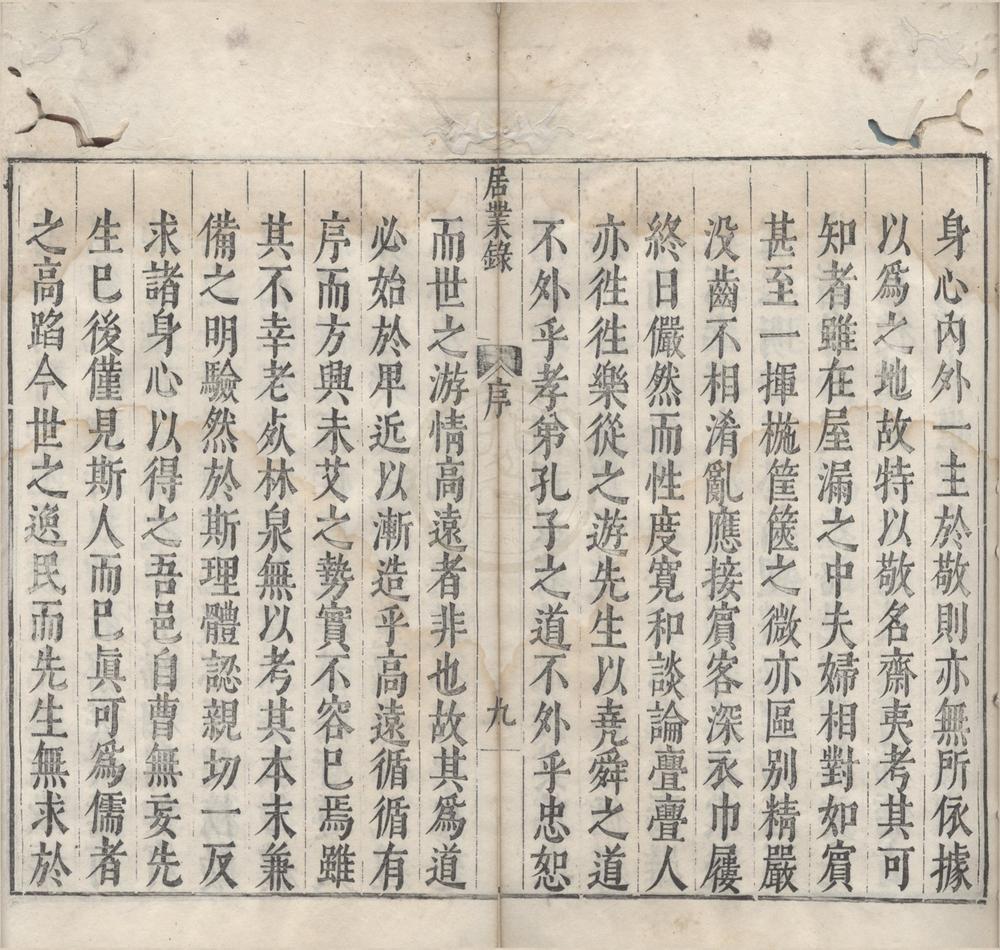 身心內外一主於敬則亦無所依據
以爲之地故特以敬名齋夷考其可
知者雖在屋漏之中夫婦相對如賔
甚至一揮椸筐篋之微亦區别精嚴
没齒不相淆亂應接賔客深衣巾屨
終日儼然而性度寛和談論亹亹人
亦徃徃樂從之遊先生以堯舜之道
不外乎孝弟孔子之道不外乎忠恕
居業錄
序
九
而世之游情高遠者非也故其爲道
必始於卑近以漸造乎高遠循循有
序而方興未艾之勢實不容巳焉雖
其不幸老於林泉無以考其本末兼
備之明驗然於斯理體認親切一反
求諸身心以得之吾邑自曹無妄先
生巳後僅見斯人而巳眞可爲儒者
之高蹈今世之逸民而先生無求於